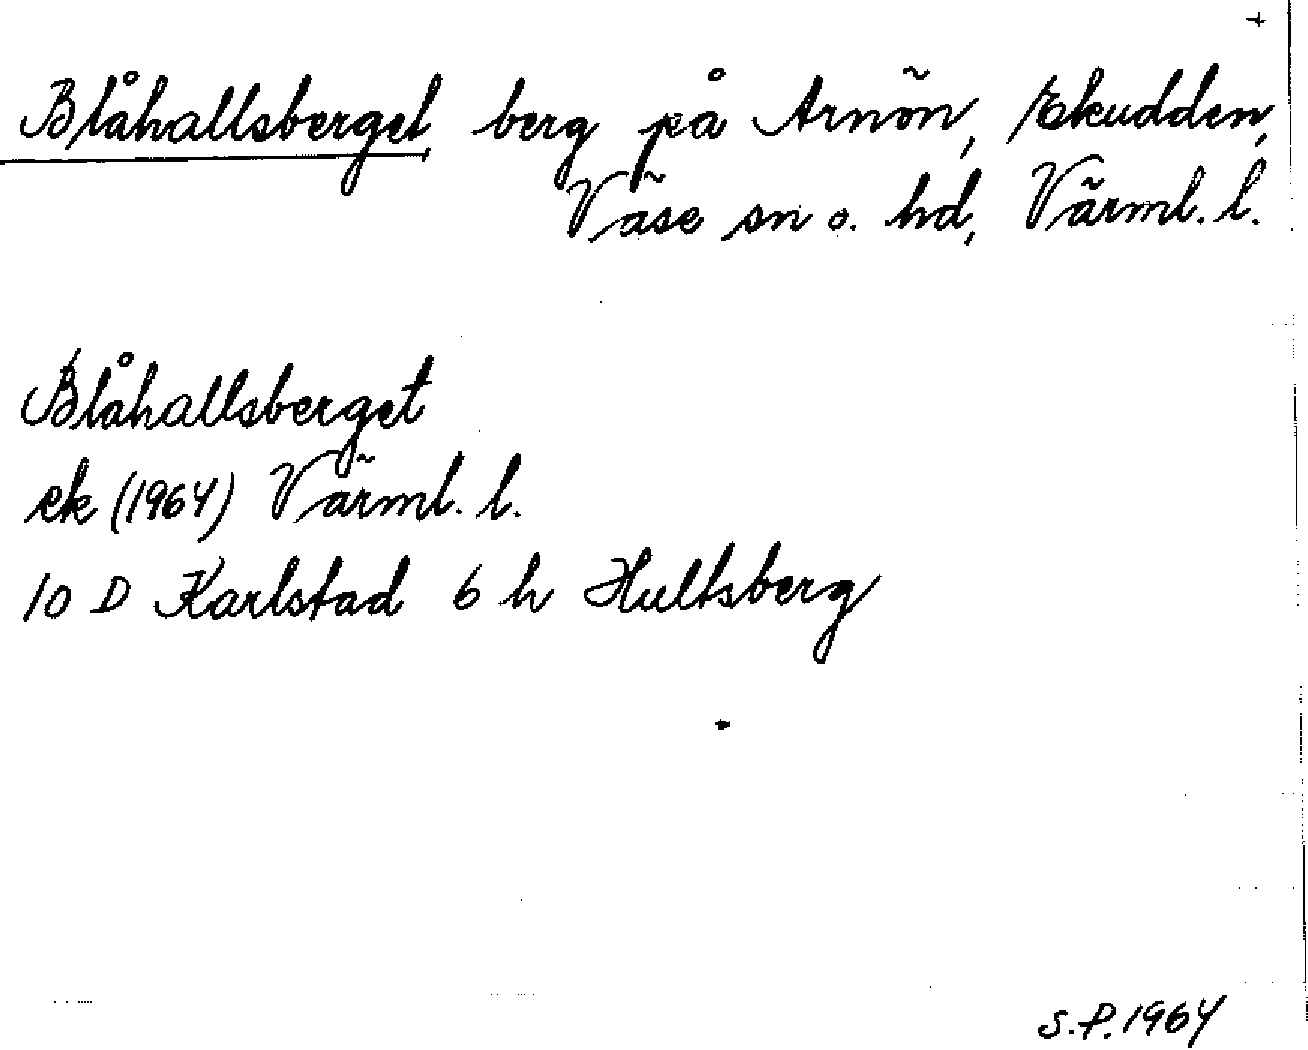 +
Blåhallsberget berg på Arnön, Ekudden,
Väse sn o. hd, Värml. l.
Blåhallsberget
ek (1964) Värml. l.
10 D Karlstad 6 h Hultsberg
S.P. 1964